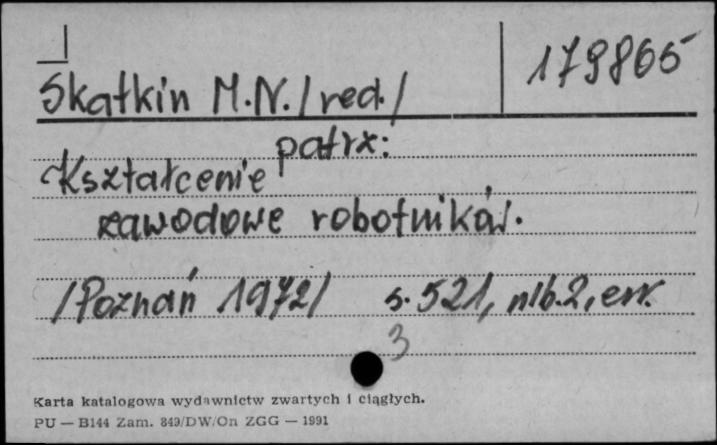 179865
Skatkin M.N. /red./
patrz:
Kształcenie
zawodowe robotników.
/Poznań 1972/ s. 521, nlb. 2, err.
3
Karta katalogowa wydawnictw zwartych i ciągłych.
PU — B144 Zam. 849/DW/On ZGG — 1991